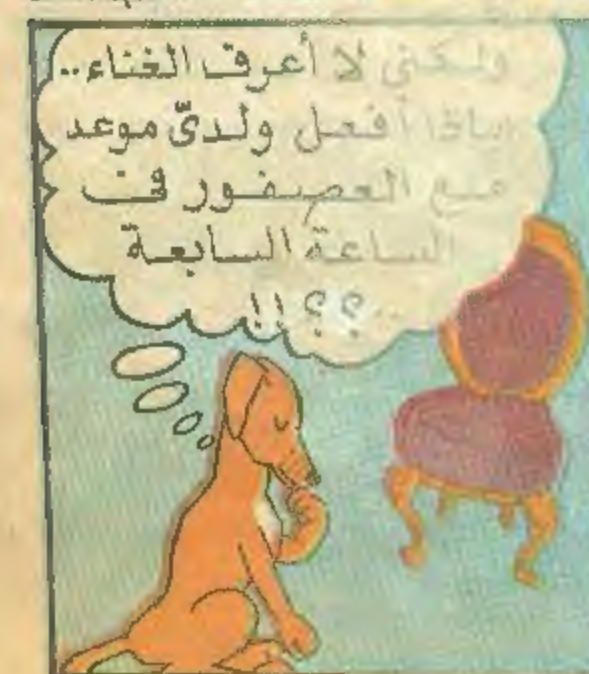 ولكني لا أعرف الغناء..
ماذا أفعل ولديّ موعد
مع العصفور في
الساعة السابعة
..؟؟!!